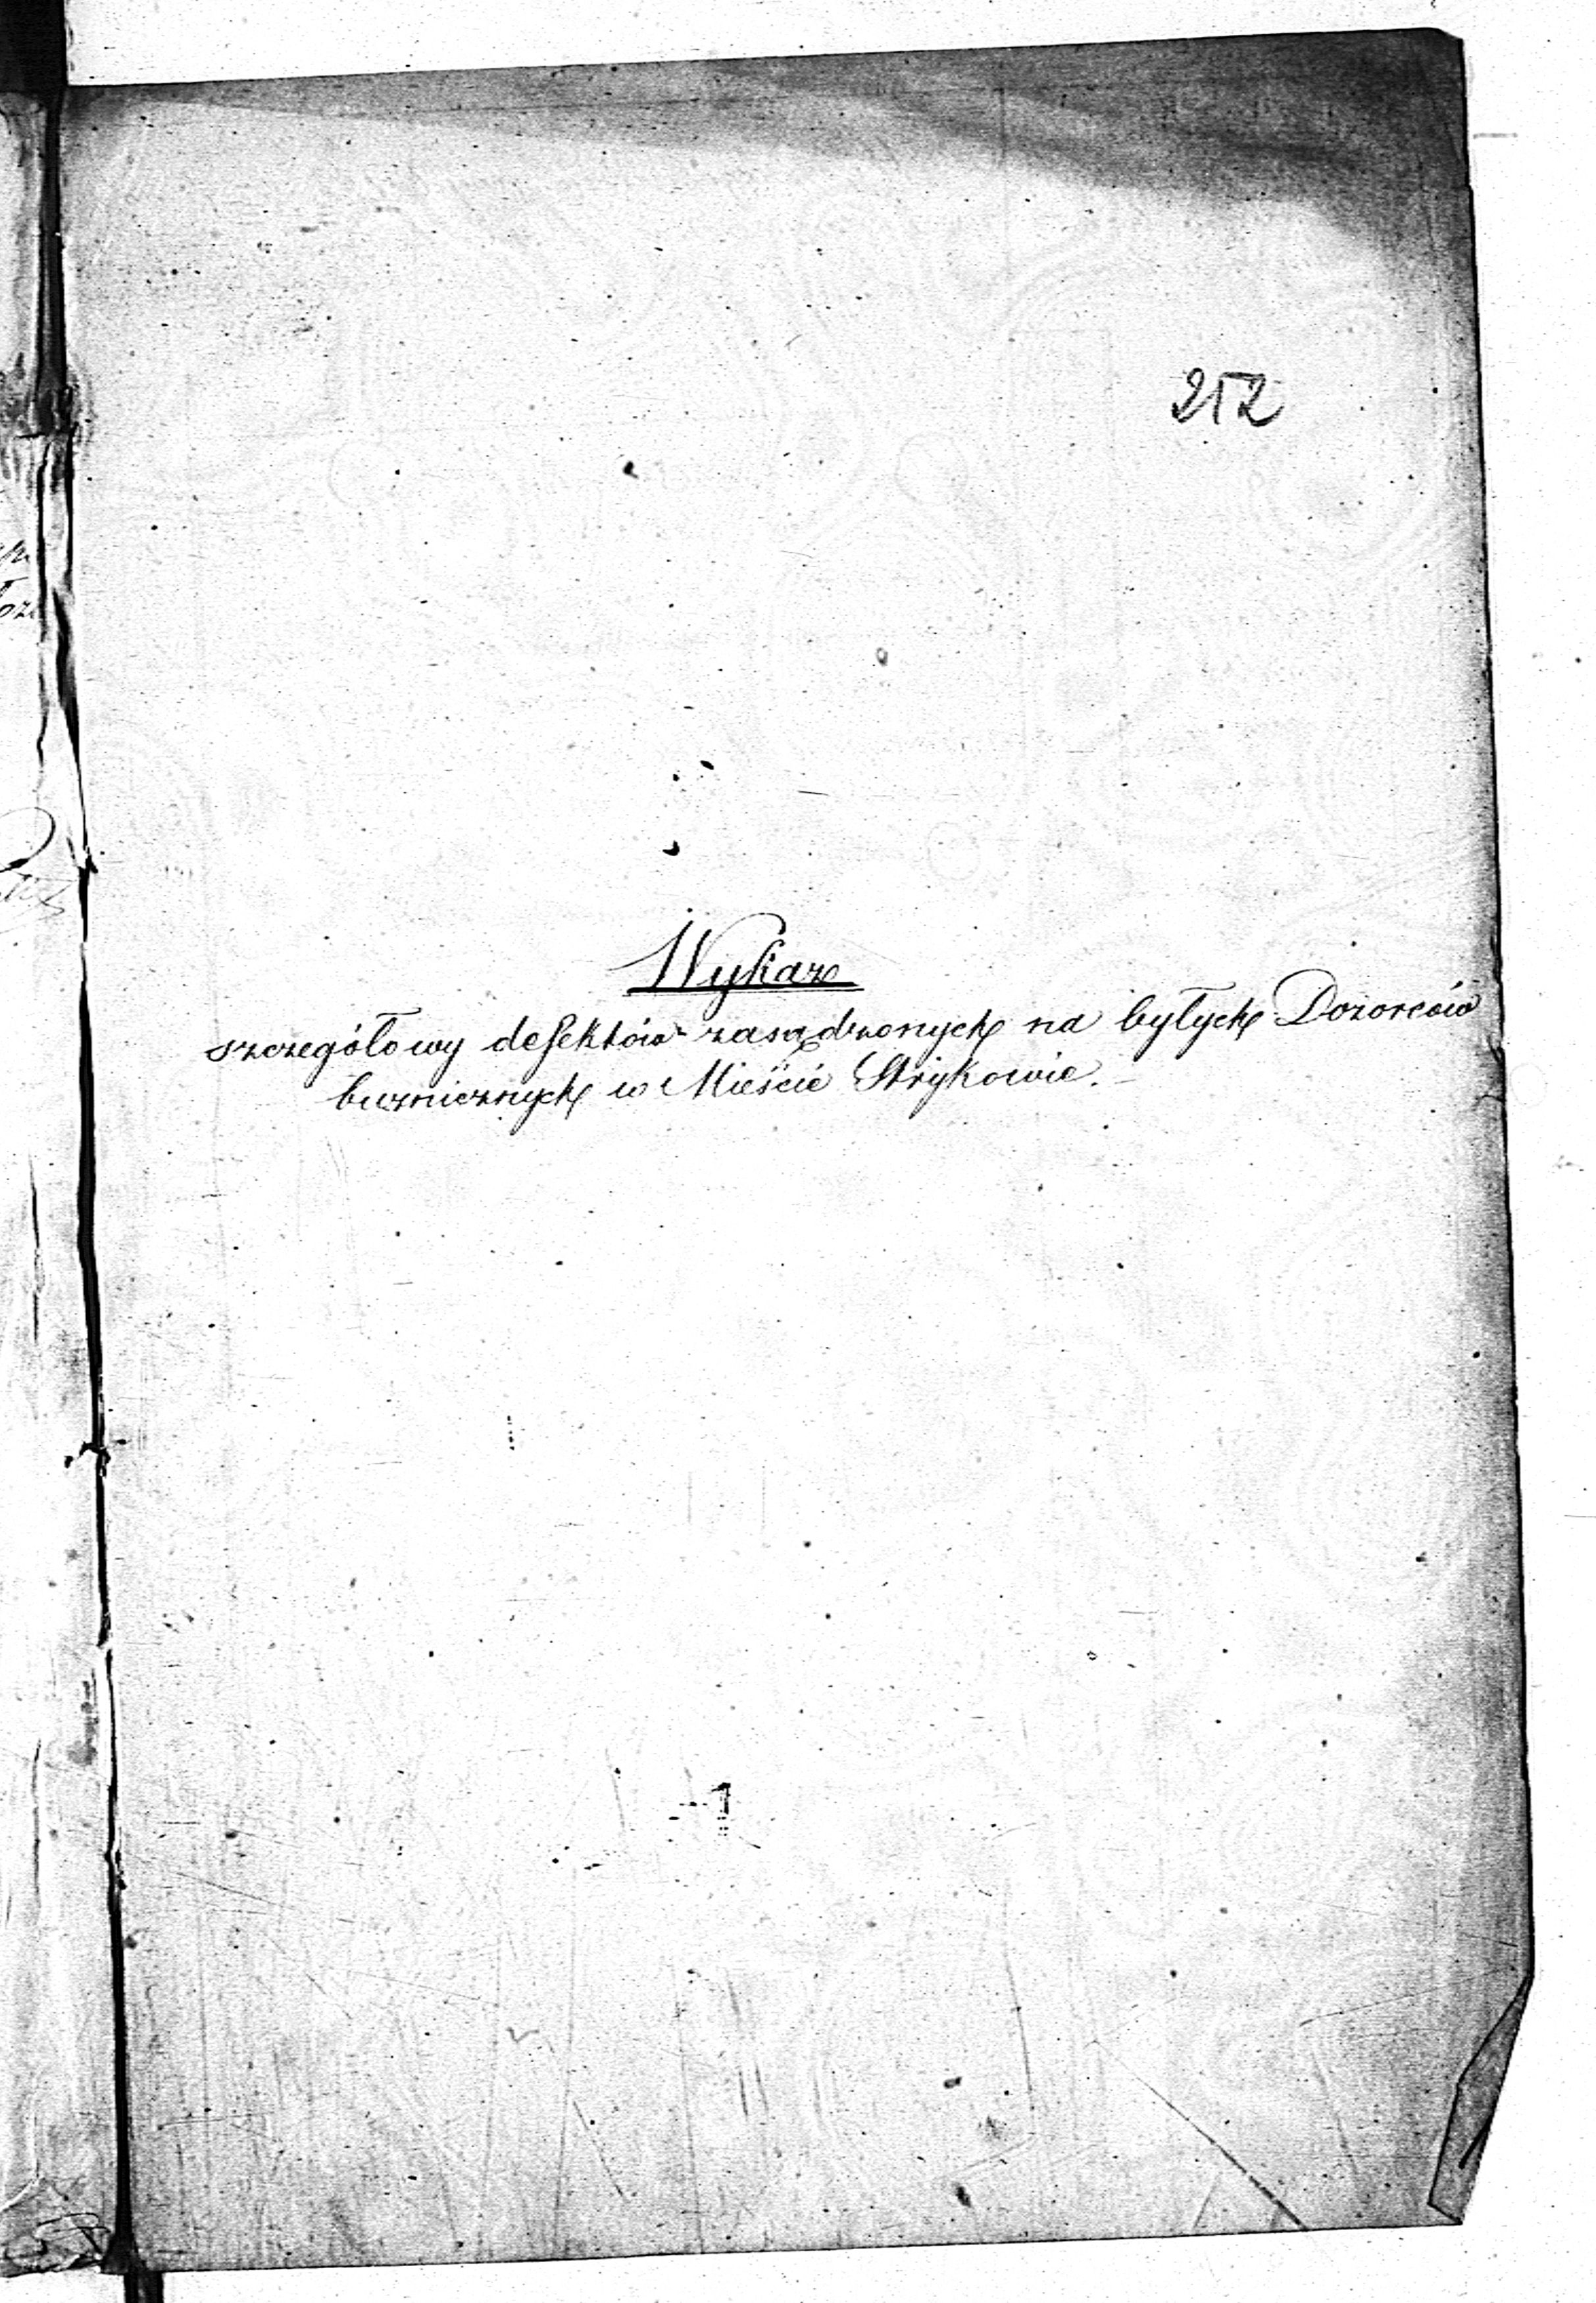 212
Wykaz
szczegółowy defektów zasądzonych na byłych Dozorców
buznicznych w Mieście Strykowie.